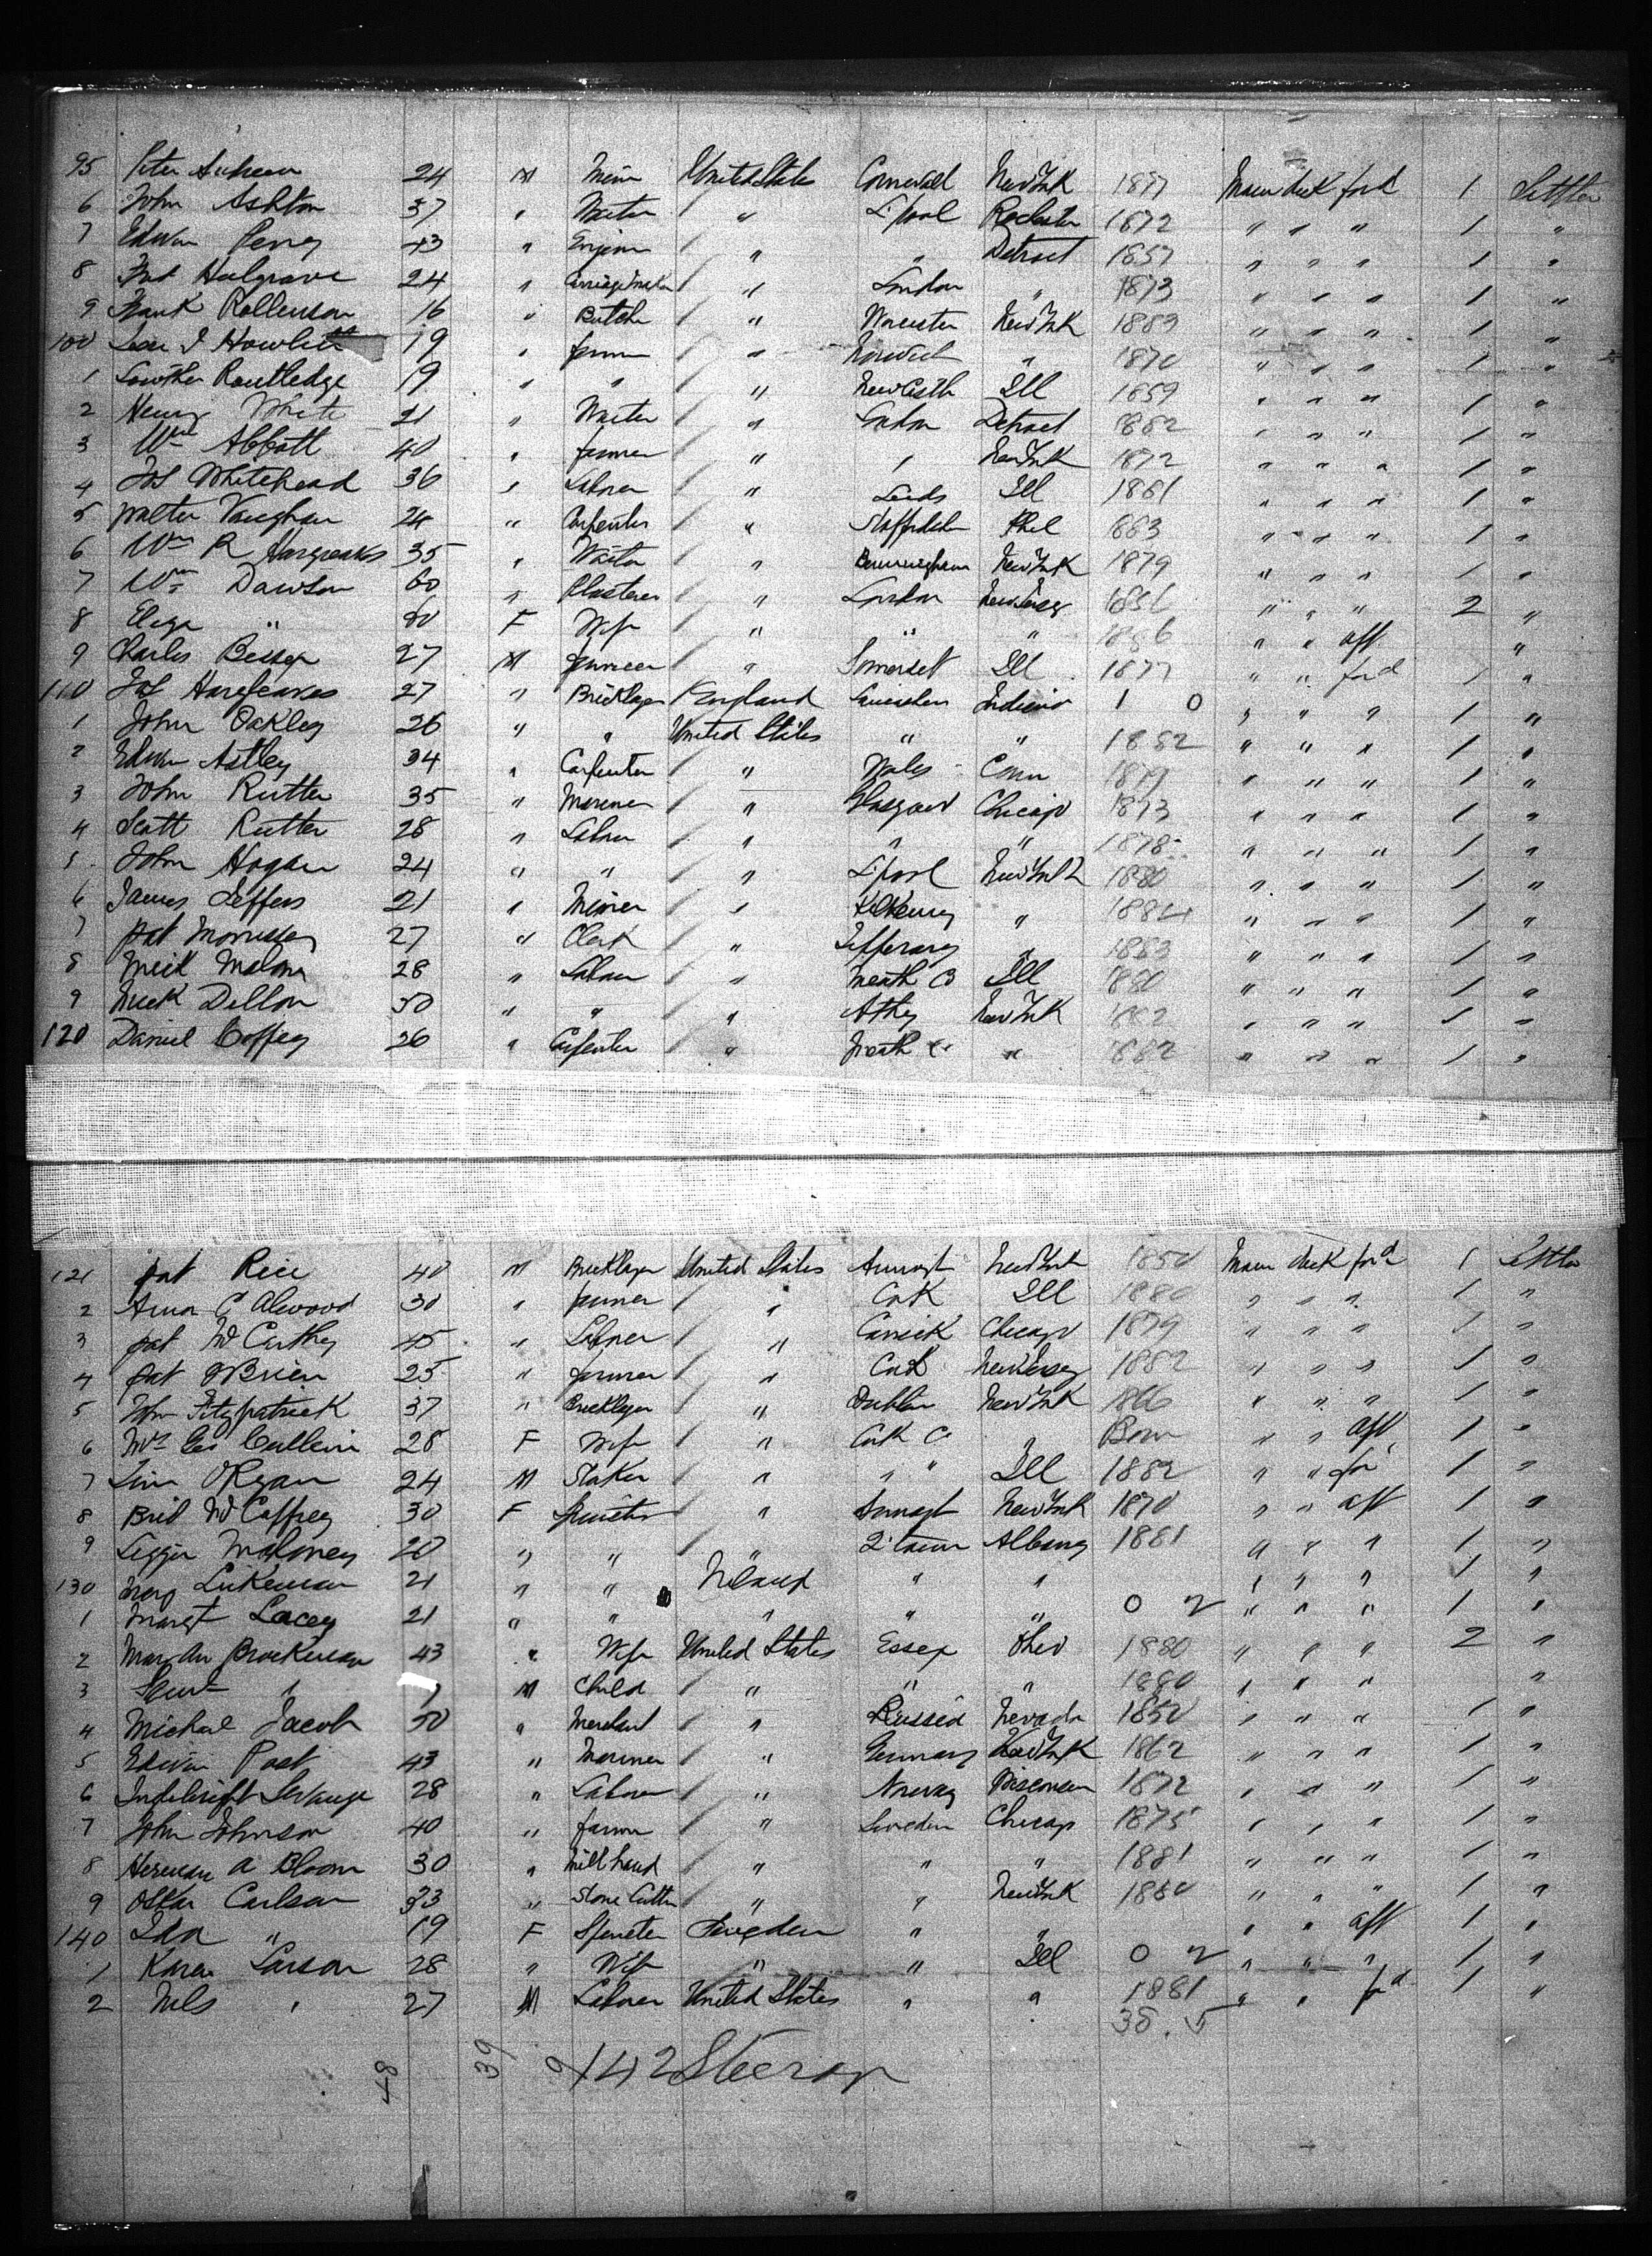 95 Peter 24 M United States Cornwall New York 1877 Main deck ford 1 Settler
6 John Ashton 37 " Waiter " L'pool Rochester 1872 " " " 1 "
7 Edwin Perry 43 " " " Detroit 1857 " " " 1 "
8 24 " Carriage maker " London " 1873 " " " 1 "
9 Frank Rollenson 16 " Butcher " Worcester New York 1883 " " " 1 "
100 19 " farmer " Norwich " 1870 " " " 1 "
1 Lowther Routledge 19 " " " Newcastle Ill 1859 " " " 1 "
2 Henry White 21 " Waiter " London Detroit 1882 " " " 1 "
3 Wm Abbott 40 " farmer " " New York 1872 " " " 1 "
4 Jos Whitehead 36 " Laborer " Leeds Ill 1881 " " " 1 "
5 Walter Vaughan 24 " Carpenter " Phil 1883 " " " 1 "
6 Wm R Hargreaves 35 " Waiter " Birmingham New York 1879 " " " 1 "
7 Wm Dawson 60 " Plasterer " London New Jersey " " " 2 "
8 Eliza " 60 F Wife " " " " " aft "
9 Charles 27 M " Somerset Ill 1877 " " ford 1 "
110 Jas Hargreaves 27 " Bricklayer England Indiana 1 0 " " " 1 "
1 John Oakley 26 " " United States " " 1882 " " " 1 "
2 Edwin Astley 34 " Carpenter " Wales Conn 1879 " " " 1 "
3 John Rutter 35 " Mariner " Glasgow Chicago 1873 " " " 1 "
4 Scott Rutter 28 " Laborer " " " 1878 " " " 1 "
5 John Hogan 24 " " " L'pool New York 1880 " " " 1 "
6 James Jeffers 21 " Miner " Kilkenny " 1884 " " " 1 "
7 Pat Morrissey 27 " Clerk " Tipperary " 1883 " " " 1 "
8 Mick Malone 28 " Laborer " Meath Co Ill 1880 " " " 1 "
9 Mick Dillon 30 " " " Athy New York 1882 " " " 1 "
120 Daniel Coffey 26 " Carpenter " Meath " 1882 " " " 1 "
121 Pat Rice 40 M Bricklayer United States New York 1850 Main deck ford 1 Settler
2 C Alwood 30 " farmer " Cork Ill 1880 " " " 1 "
3 Pat McCarthy 45 " Laborer " Carrick Chicago 1879 " " " 1 "
4 Pat OBrien 25 " farmer " Cork New Jersey 1882 " " " 1 "
5 Fitzpatrick 37 " Bricklayer " Dublin New York 1866 " " " 1 "
6 Mrs Geo 28 F Wife " Cork Co " Born " " aft 1 "
7 Tim 24 M " " " Ill 1882 " " for 1 "
8 Brid McCaffrey 30 F Spinster " New York 1870 " " aft 1 "
9 Lizzie Maloney 20 " " " Q'town Albany 1881 " " " 1 "
130 21 " " Ireland " " " " " 1 "
1 Margt Lacey 21 " " " " " 0 2 " " " 1 "
2 43 " Wife United States Essex Ohio 1880 " " " 2 "
3 " M Child " " " 1880 " " " "
4 Michael Jacob 50 " Merchant " Russia Nevada 1850 " " " 1 "
5 Edwin Post 43 " Mariner " Germany New York 1862 " " " 1 "
6 28 " Laborer " Norway Wisconsin 1872 " " " 1 "
7 John Johnson 40 " farmer " Sweden Chicago 1875 " " " 1 "
8 Herman A Bloom 30 " Mill hand " " " 1881 " " " 1 "
9 Oskar Carlson 33 " Stone Cutter " " New York 1880 " " " 1 "
140 Ida " 19 F Spinster Sweden " " " " aft 1 "
1 Karen Larson 28 " Wife " " Ill 0 2 " " " 1 "
2 Nels " 27 M Laborer United States " " 1881 " " ford 1 "
38 . 5
48 39 9 142 Steerage